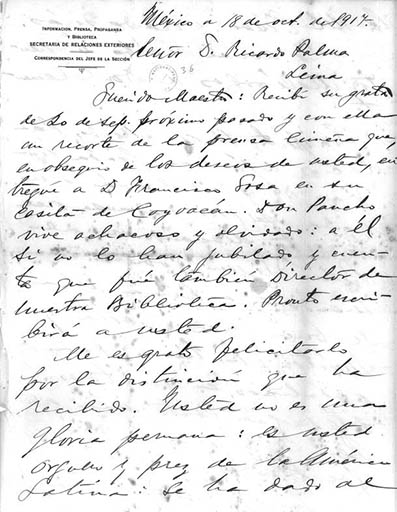 INFORMACION, PRENSA, PROPAGANDA
Y BIBLIOTECA
SECRETARIA DE RELACIONES EXTERIORES
CORRESPONDENCIA DEL JEFE DE LA SECCIÓN
México a 18 de oct. de 1917.
36
Señor D. Ricardo Palma
Lima
Querido Maestro: Recibí su grata
de 20 de sep. próximo pasado y con ella
un recorte de la prensa limeña que,
en obsequio de los deseos de usted, en
tregué a D Francisco Sosa en su
casita de Coyoacán. Don Pancho
vive achacoso y olvidado: a él
si no lo han jubilado y cuen-
ta que fué también Director de
nuestra Biblioteca. Pronto escri
birá a usted.
Me es grato felicitarlo
por la distinción que ha
recibido. Usted no es una
gloria peruana: es usted
orgullo y prez de la América
Latina: Se ha dado al